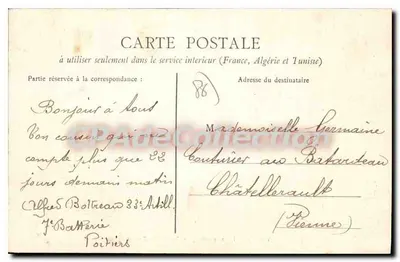 CARTE POSTALE
à utiliser seulement dans le service intérieur (France, Algérie et Tunisie)
Partie réservée à la correspondance :
Adresse du destinataire
(86)
Bonjour à tous
Ton cousin qui ne
compte plus que 22
jours demain matin
Alfred Boireau 33e Artill.
7e Batterie
Poitiers
Mademoiselle Germaine
Couturier au Batardeau
Châtellerault
(Vienne)